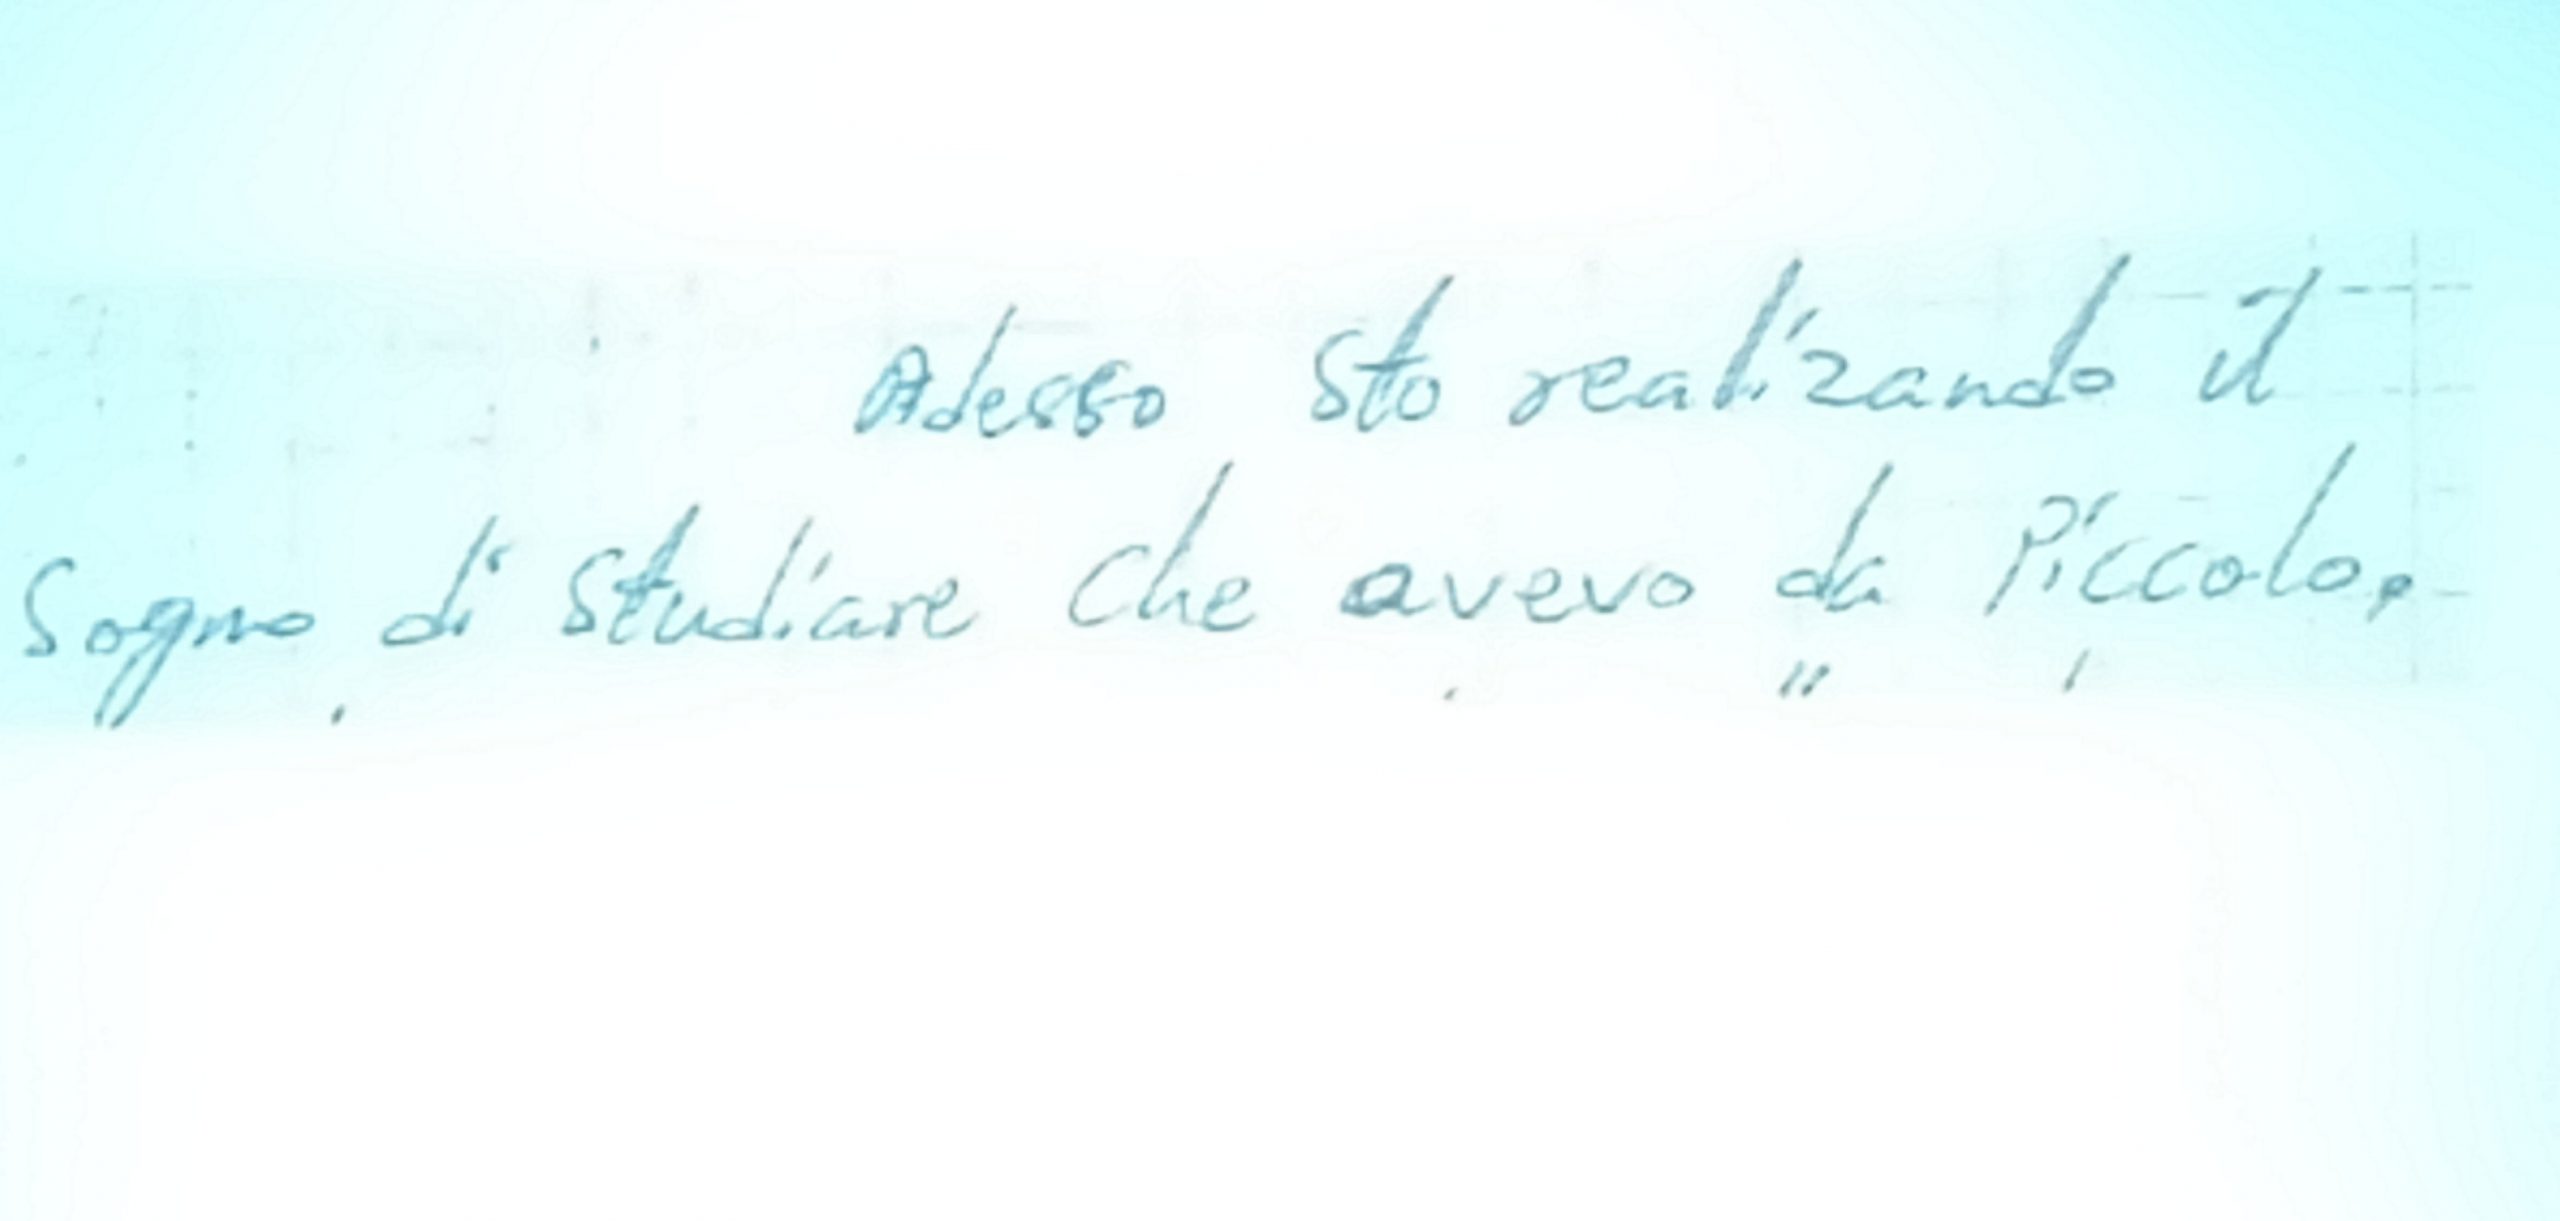 Adesso sto realizando il
Sogno di studiare che avevo da Piccolo.